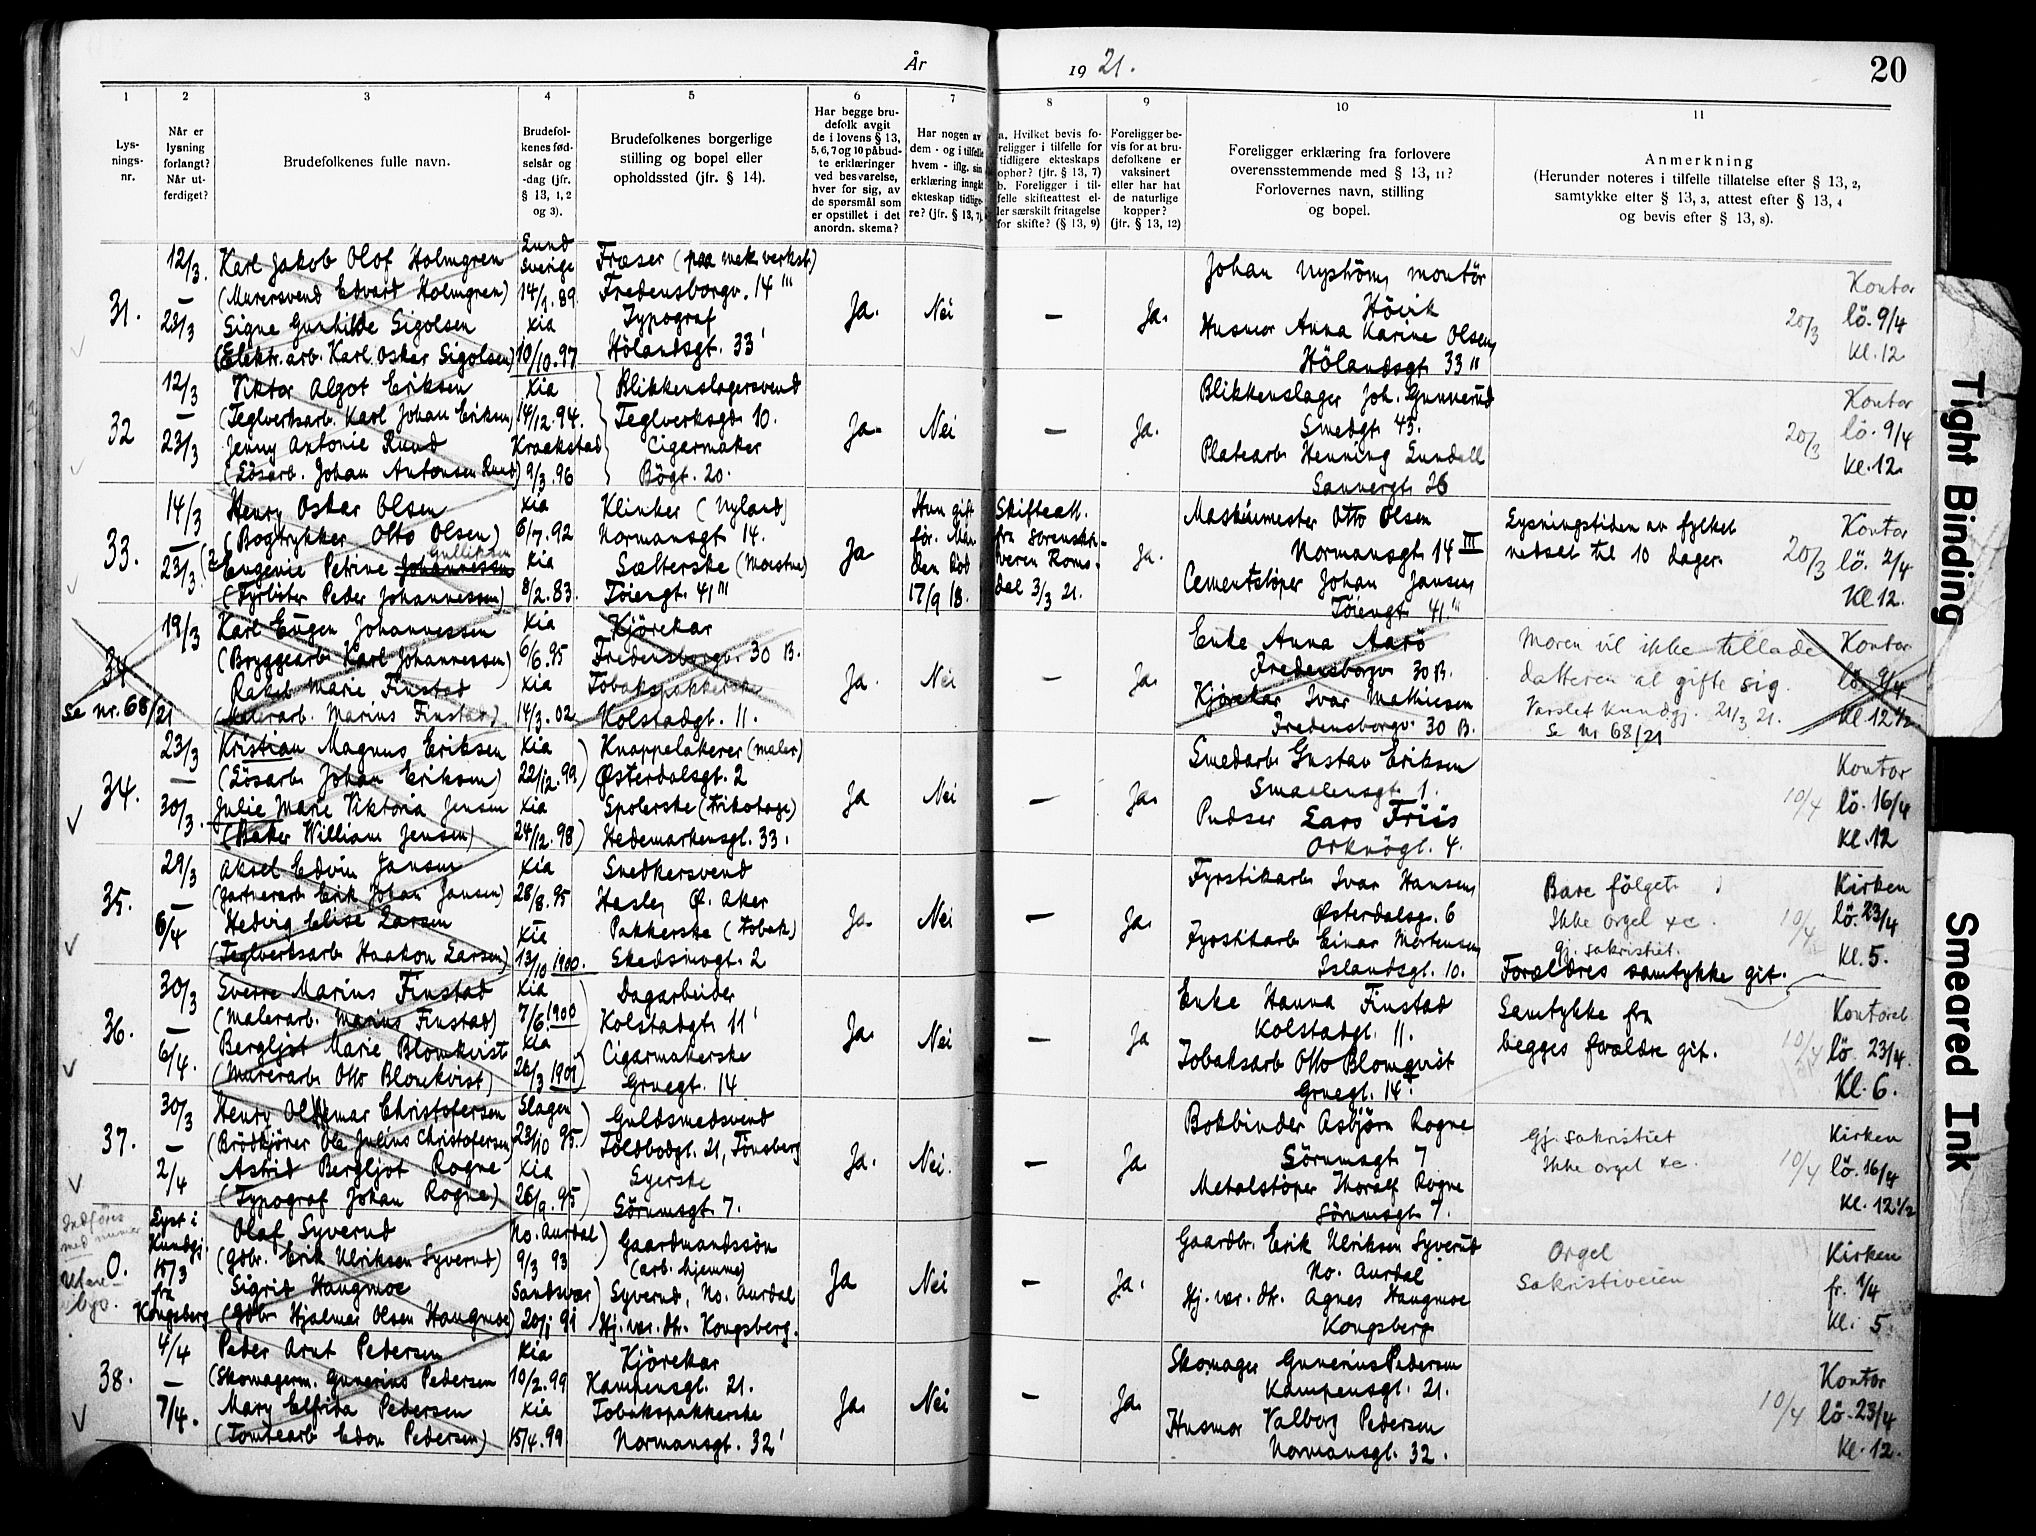 År 1921.
20
1
2
3
4
5
6
7
8
9
10
11
Lys-
nings-
nr.
Når er
lysning
forlangt?
Når ut-
ferdiget?
Brudefolkenes fulle navn.
Brudefol-
kenes fød-
selsår og
-dag (jfr.
§ 13, 1, 2
og 3).
Brudefolkenes borgerlige
stilling og bopel eller
opholdssted (jfr. § 14).
Har begge bru-
defolk avgit
de i lovens § 13,
5, 6, 7 og 10 påbud-
te erklæringer
ved besvarelse,
hver for sig, av
de spørsmål som
er opstillet i det
anordn. skema?
Har nogen av
dem - og i tilfelle
hvem - iflg. sin
erklæring inngått
ekteskap tidlige-
re? (jfr. § 13, 7).
a. Hvilket bevis fo-
religger i tilfelle for
tidligere ekteskaps
ophør? (jfr. § 13, 7)
b. Foreligger i til-
felle skifteattest el-
ler særskilt fritagelse
for skifte? (§ 13, 9)
Foreligger be-
vis for at bru-
defolkene er
vaksinert
eller har hat
de naturlige
kopper?
(jfr. § 13, 12)
Foreligger erklæring fra forlovere
overensstemmende med § 13, 11?
Forlovernes navn, stilling
og bopel.
Anmerkning
(Herunder noteres i tilfelle tillatelse efter § 13, 2,
samtykke efter § 13, 3, attest efter § 13, 4
og bevis efter § 13, 8).
31.
12/3.
—
23/3
Karl Jakob Olof Holmgren
(Murersvend Edvard Holmgren)
Signe Gunhilde Sigolsen
(Elektr. arb. Karl Oskar Sigolsen)
Lund
Sverige
14/9.89.
Kia
10/10.97
Fræser (paa mek. verkst.)
Fredensborgv. 14 III
Typograf
Hölandsgt. 33 I
Ja.
Nei
—
Ja.
Johan Nyström, montör
Hövik
Husmor Anna Karine Olsen,
Hölandsgt. 33 II
20/3
Kontor
lö. 9/4
Kl. 12
32
12/3
—
23/3
Viktor Algot Eriksen
(Teglverksarb. Karl Johan Eriksen)
Jenny Antonie Rund
(Lösarb. Johan Antonsen Rund)
Kia
14/12.94.
Kraakstad
9/3.96
Blikkenslagersvend
Teglverksgt. 10.
Cigarmaker
Bögt. 20.
Ja.
Nei
—
Ja.
Blikkenslager Joh. Gunnerud
Smedgt. 45.
Platearb. Henning Lundell
Sannergt. 26
20/3
Kontor
lö. 9/4
Kl. 12.
33.
14/3
—
23/3
Henry Oskar Olsen
(Bogtrykker Otto Olsen)
Gulliksen
Eugenie Petrine Johannessen
(Fyrböter Peder Johannessen)
Kia
6/7.92
Kia
8/2.83.
Klinker (Nyland)
Normansgt. 14.
Sælterske
Töiengt. 41 III
Ja
Hun gift
før. Man-
den död
17/9 18.
Skifteatt.
fra Sorenskri-
veren Roms-
dal 3/3 21.
Ja.
Maskinmester Otto Olsen
Normansgt. 14 III
Cementstöper Johan Jansen,
Töiengt. 41 III
Lysningstiden av fylket
nedsat til 10 dager.
20/3
Kontor
lö. 2/4
Kl 12.
34
Se nr. 68/21
19/3
Karl Eugen Johannessen
(Bryggearb. Karl Johannessen)
Rakel Marie Finstad
(Malerarb. Marius Finstad)
Kia
6/6.95
Kia
14/3.02
Kjörekar
Fredensborgv. 30 B.
Tobakspakkerske
Kolstadgt. 11.
Ja.
Nei
—
Ja.
Enke Anna Aarö
Fredensborgv 30 B.
Kjörekar Ivar Mathiesen
Fredensborgv. 30 B.
Moren vil ikke tillade
datteren at gifte sig.
Varslet Kundgj. 21/3 21.
Se nr 68/21
Kontor
lö. 9/4
Kl 12 1/2
34.
23/3
—
30/3.
Kristian Magnus Eriksen
(Lösarb. Johan Eriksen)
Julie Marie Viktoria Jensen
(Baker William Jensen)
Kia
22/12.99
Kia
24/12.98
Knappelakerer (maler)
Østerdalsgt. 2
Spolerske (Trikotage)
Hedemarkensgt. 33 I
Ja
Nei
—
Ja.
Smedarb. Gustav Eriksen
Smaalensgt. 1.
Pudser Lars Friis
Orknögt. 4.
10/4
Kontor
lö. 16/4
Kl. 12
35.
29/3
—
6/4
Aksel Edvin Jansen
(Gartnerarb. Erik Johan Jansen)
Hedvig Elise Larsen
(Teglverksarb. Haakon Larsen)
Kia
28/8.95
Kia
13/10 1900.
Snedkersvend
Hasle, Ø. Aker
Pakkerske (Tobak)
Skedsmogt. 2
Ja.
Nei
—
Ja.
Fyrstikarb. Ivar Hansen,
Østerdalsg. 6
Fyrstikarb. Einar Mortensen,
Islandsgt. 10.
Bare fölget
Ikke orgel &c.
Gj. sakristiet.
Forældres samtykke git.
10/4
Kirken
lö. 23/4
Kl. 5.
36.
30/3
—
6/4.
Sverre Marius Finstad
(Malerarb. Marius Finstad)
Bergljot Marie Blomkvist
(Murerarb. Otto Blomkvist)
Kia
7/6.1900
Kia
26/3 1901
Dagarbeider
Kolstadgt. 11 I
Cigarmakerske
Gruegt. 14
Ja.
Nei
—
Ja
Enke Hanna Finstad
Kolstadgt. 11.
Tobaksarb. Otto Blomqvist
Gruegt. 14 I
Samtykke fra
begges forældre git.
10/4
Kontoret
lö. 23/4.
Kl. 6.
37.
30/3
—
2/4
Henry Oldemar Christofersen
(Brödkjörer Ole Julius Christofersen)
Astrid Bergljot Rogne
(Typograf Johan Rogne)
Slagen
23/10 95.
Kia
26/9.95
Guldsmedsvend
Toldbodgt. 21, Tönsberg
Syerske
Sörumsgt. 7.
Ja.
Nei.
—
Ja
Bokbinder Asbjörn Rogne
Sörumsgt. 7
Metalstöper Thoralf Rogne
Sörumsgt. 7.
Gj. sakristiet
Ikke orgel &c.
10/4
Kirken
lö. 16/4
Kl. 12 1/2
Indföres
0.
Lyst i
Kundgj.
15/3
fra
Kongsberg
Olaf Syverud
(Gdbr. Erik Ulriksen Syverud)
Sigrid Haugmoe
(Gdbr. Hjalmar Olsen Haugmoe)
No. Aurdal
9/3 93
Sandsvær
20/1 91
Gaardmandssön
(arb. hjemme)
Syverud, No. Aurdal
Hj. vær. dtr. Kongsberg.
Ja
Nei
—
Ja.
Gaardbr. Erik Ulriksen Syverud
No. Aurdal
Hj. vær. dtr. Agnes Haugmoe
Kongsberg
Orgel
Sakristiveien
Kirken
fr. 1/4
Kl. 5.
38.
4/4
—
7/4.
Peder Arnt Pedersen
(Skomagerm. Gunerius Pedersen
Mary Elfrida Pedersen
(Tomtearb. Edon Pedersen)
Kia
10/2.99
Kia
15/4.99
Kjörekar
Kampensgt. 21.
Tobakspakkerske
Normansgt. 32 I
Ja.
Nei
—
Ja.
Skomager Gunerius Pedersen
Kampensgt. 21.
Husmor Valborg Pedersen
Normansgt. 32.
10/4
Kontor
lö. 23/4
Kl. 12.
Tight Binding
Smeared Ink